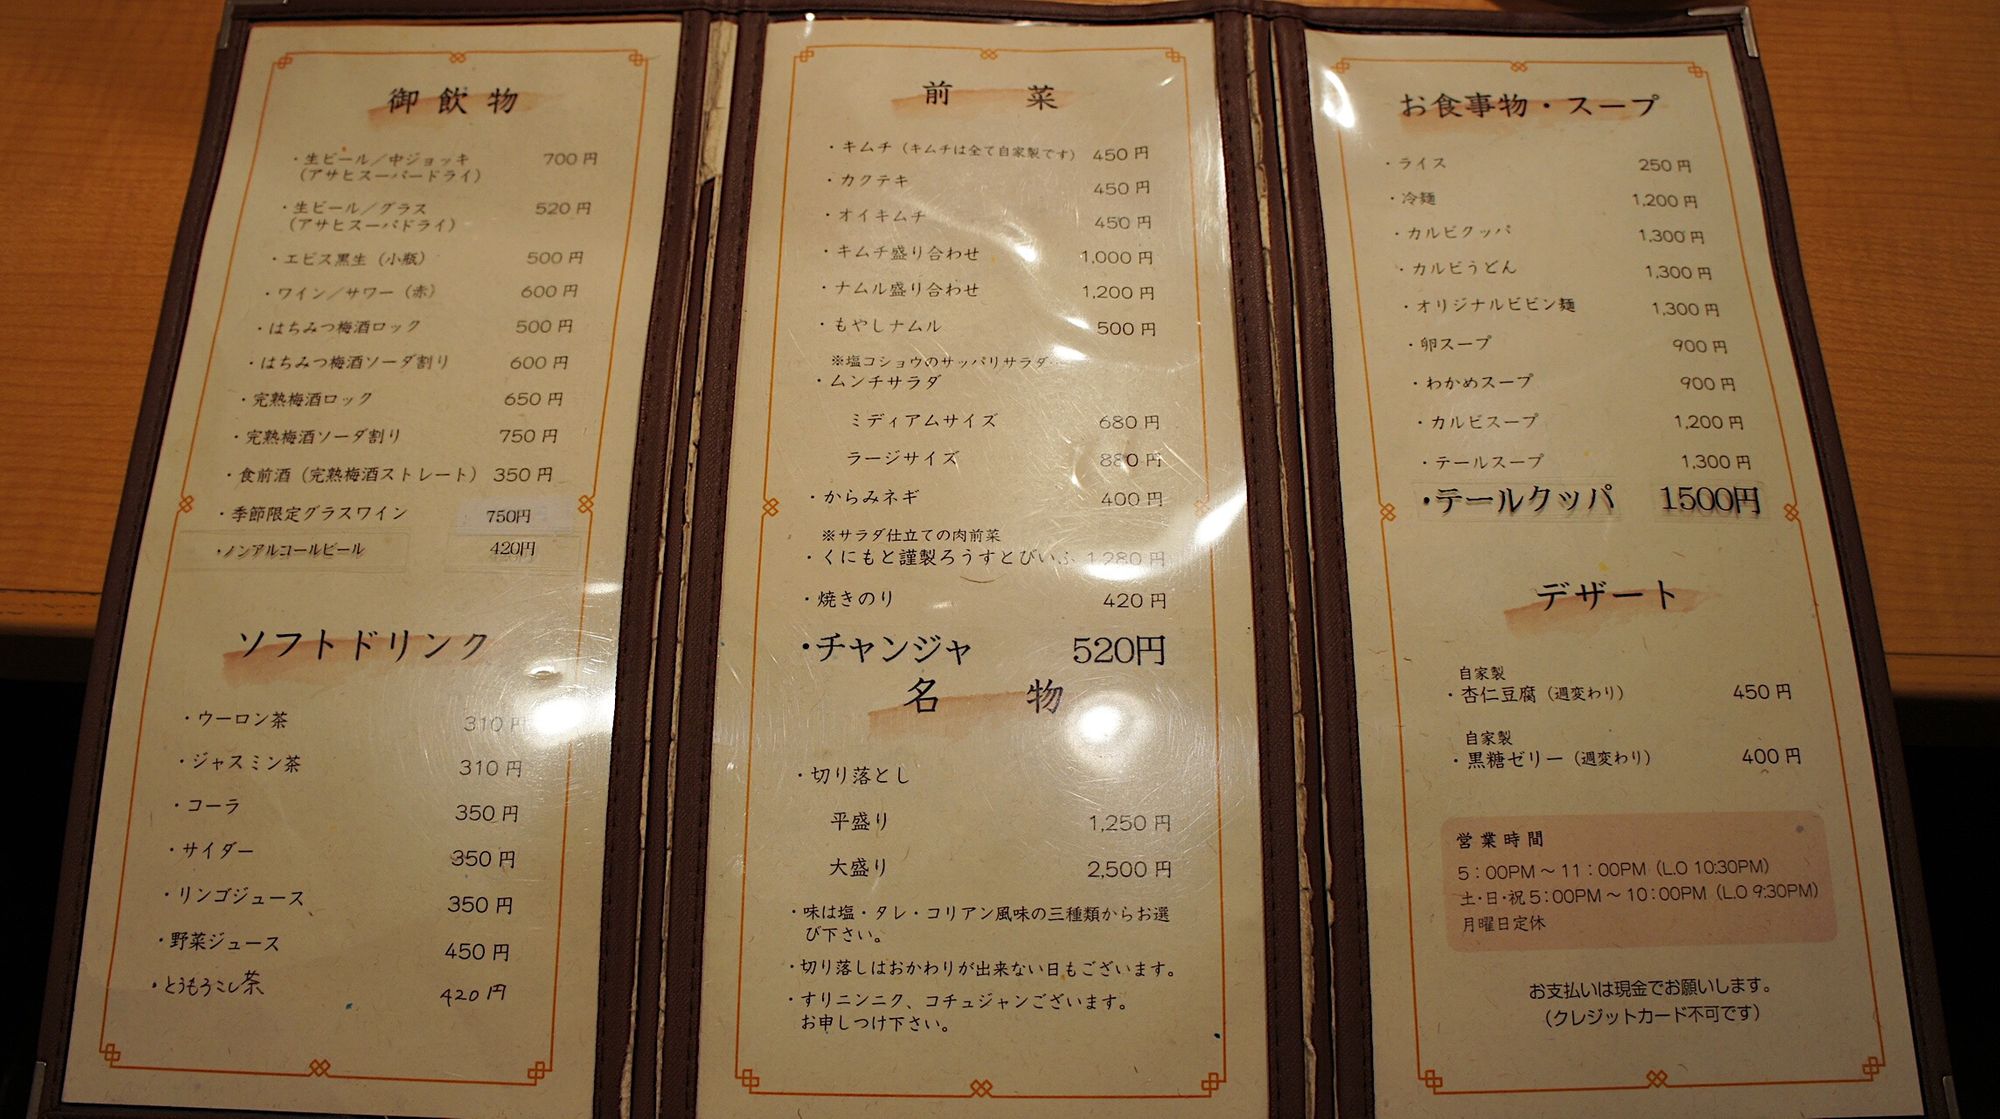 御飲物
・生ビール／中ジョッキ 700円
（アサヒスーパードライ）
・生ビール／グラス 520円
（アサヒスーパドライ）
・エビス黒生（小瓶） 500円
・ワイン／サワー（赤） 600円
・はちみつ梅酒ロック 500円
・はちみつ梅酒ソーダ割り 600円
・完熟梅酒ロック 650円
・完熟梅酒ソーダ割り 750円
・食前酒（完熟梅酒ストレート） 350円
・季節限定グラスワイン 750円
・ノンアルコールビール 420円
ソフトドリンク
・ウーロン茶 310円
・ジャスミン茶 310円
・コーラ 350円
・サイダー 350円
・リンゴジュース 350円
・野菜ジュース 450円
・とうもろこし茶 420円
前菜
・キムチ（キムチは全て自家製です） 450円
・カクテキ 450円
・オイキムチ 450円
・キムチ盛り合わせ 1,000円
・ナムル盛り合わせ 1,200円
・もやしナムル 500円
※塩コショウのサッパリサラダ
・ムンチサラダ
ミディアムサイズ 680円
ラージサイズ 880円
・からみネギ 400円
※サラダ仕立ての肉前菜
・くにもと謹製ろうすとびいふ 1,280円
・焼きのり 420円
・チャンジャ 520円
名物
・切り落とし
平盛り 1,250円
大盛り 2,500円
・味は塩・タレ・コリアン風味の三種類からお選
び下さい。
・切り落しはおかわりが出来ない日もございます。
・すりニンニク、コチュジャンございます。
お申しつけ下さい。
お食事物・スープ
・ライス 250円
・冷麺 1,200円
・カルビクッパ 1,300円
・カルビうどん 1,300円
・オリジナルビビン麺 1,300円
・卵スープ 900円
・わかめスープ 900円
・カルビスープ 1,200円
・テールスープ 1,300円
・テールクッパ 1500円
デザート
自家製
・杏仁豆腐（週変わり） 450円
自家製
・黒糖ゼリー（週変わり） 400円
営業時間
5：00PM～11：00PM（L.O 10:30PM）
土・日・祝 5：00PM～10：00PM（L.O 9:30PM）
月曜日定休
お支払いは現金でお願いします。
（クレジットカード不可です）